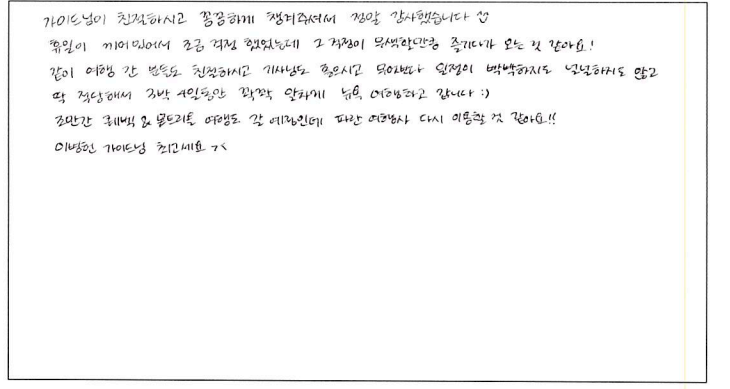 가이드님이 친절하시고 꼼꼼하게 챙겨주셔서 정말 감사했습니다
휴일이 끼어있어서 조금 걱정 했었는데 그 걱정이 무색할만큼 즐기다가 오는 것 같아요!
같이 여행 간 분들도 친절하시고 기사님도 좋으시고 무엇보다 일정이 빡빡하지도 널널하지도 않고
딱 적당해서 3박 4일동안 꽉꽉 알차게 뉴욕 여행하고 갑니다 :)
조만간 퀘백 & 몬트리올 여행도 갈 예정인데 파란 여행사 다시 이용할 것 같아요!!
이병헌 가이드님 최고세요 ㅈㅈ